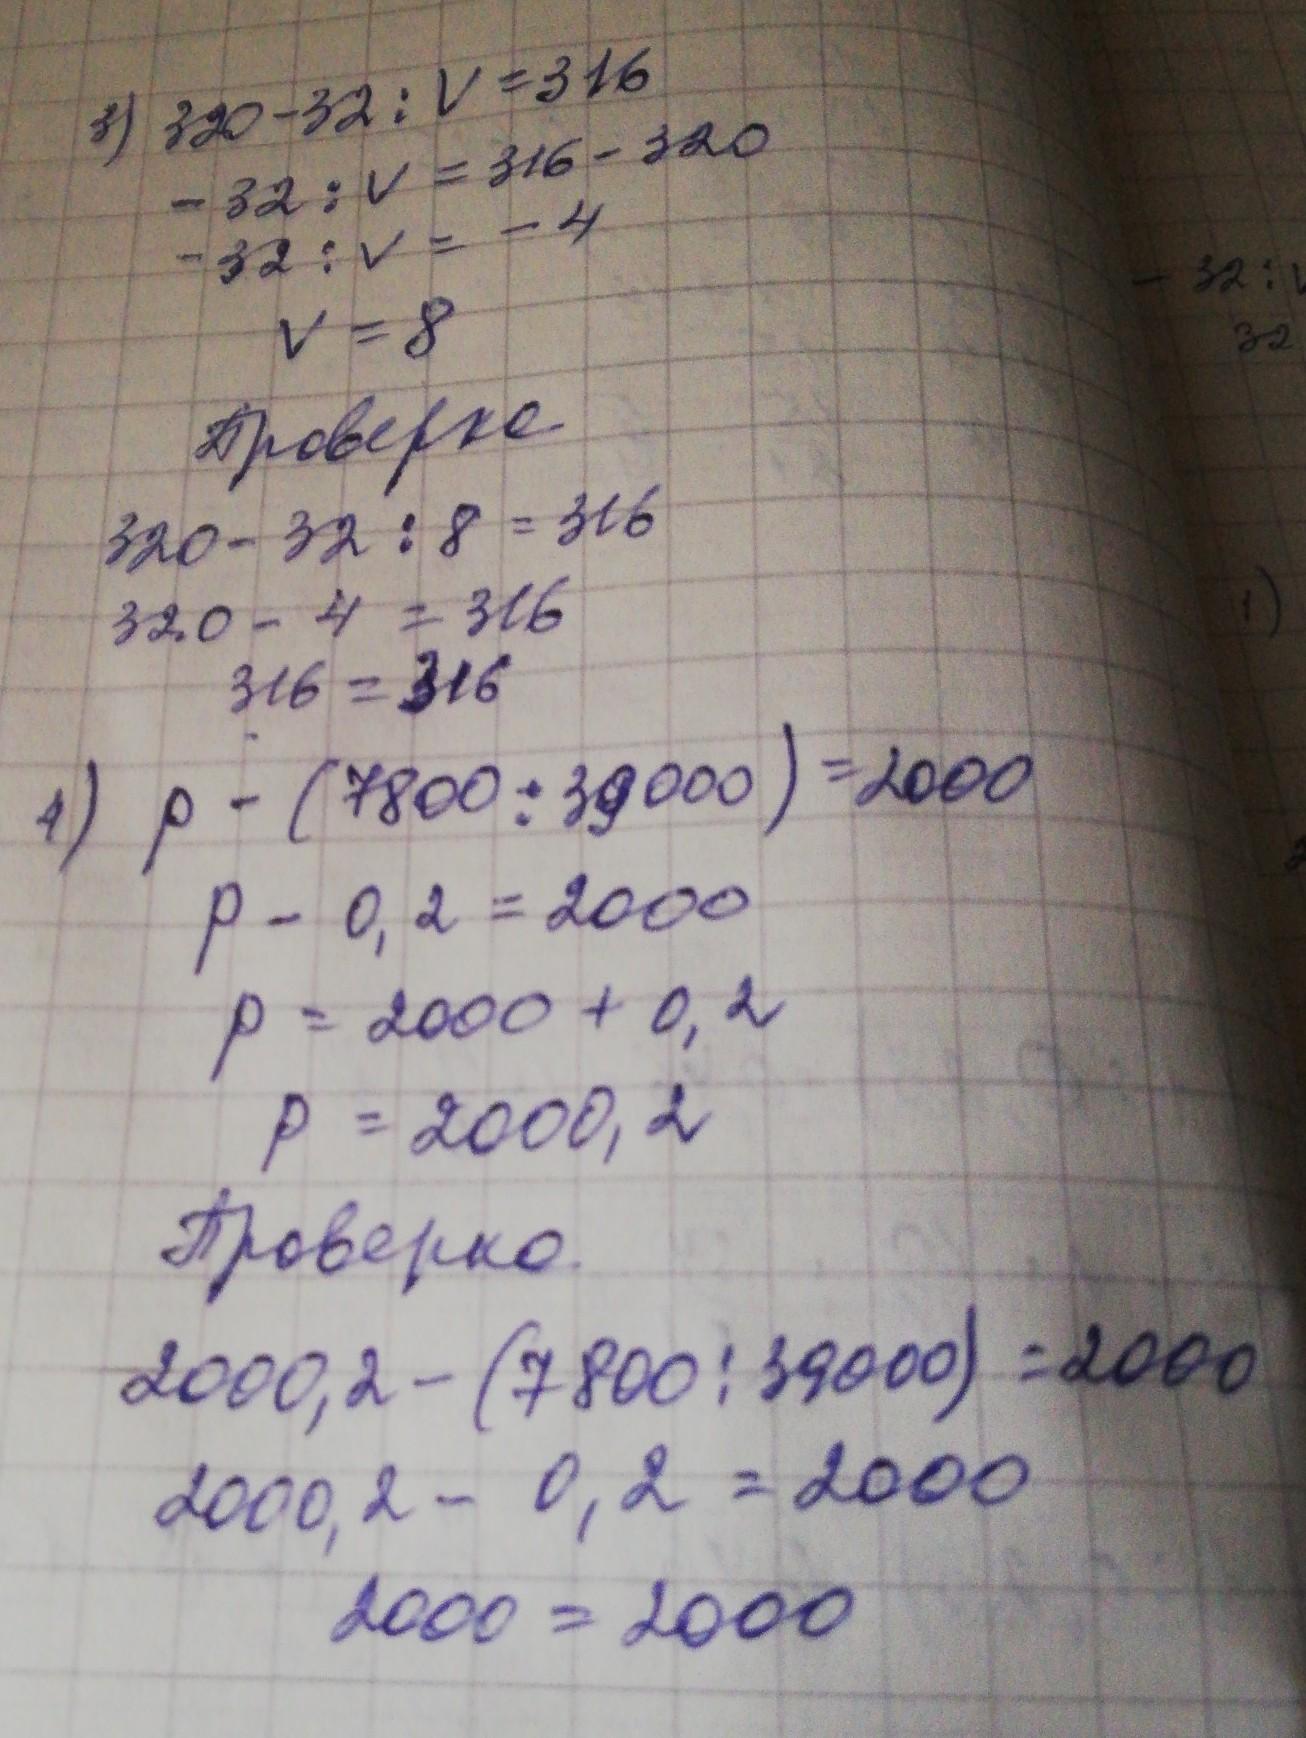 3) 320-32:V=316
-32:V=316-320
-32:V=-4
V=8
Проверка
320-32:8=316
320-4=316
316=316
1) p-(7800:39000)=2000
p-0,2=2000
p=2000+0,2
p=2000,2
Проверка
2000,2-(7800:39000)=2000
2000,2-0,2=2000
2000=2000
-32:V
32
1)